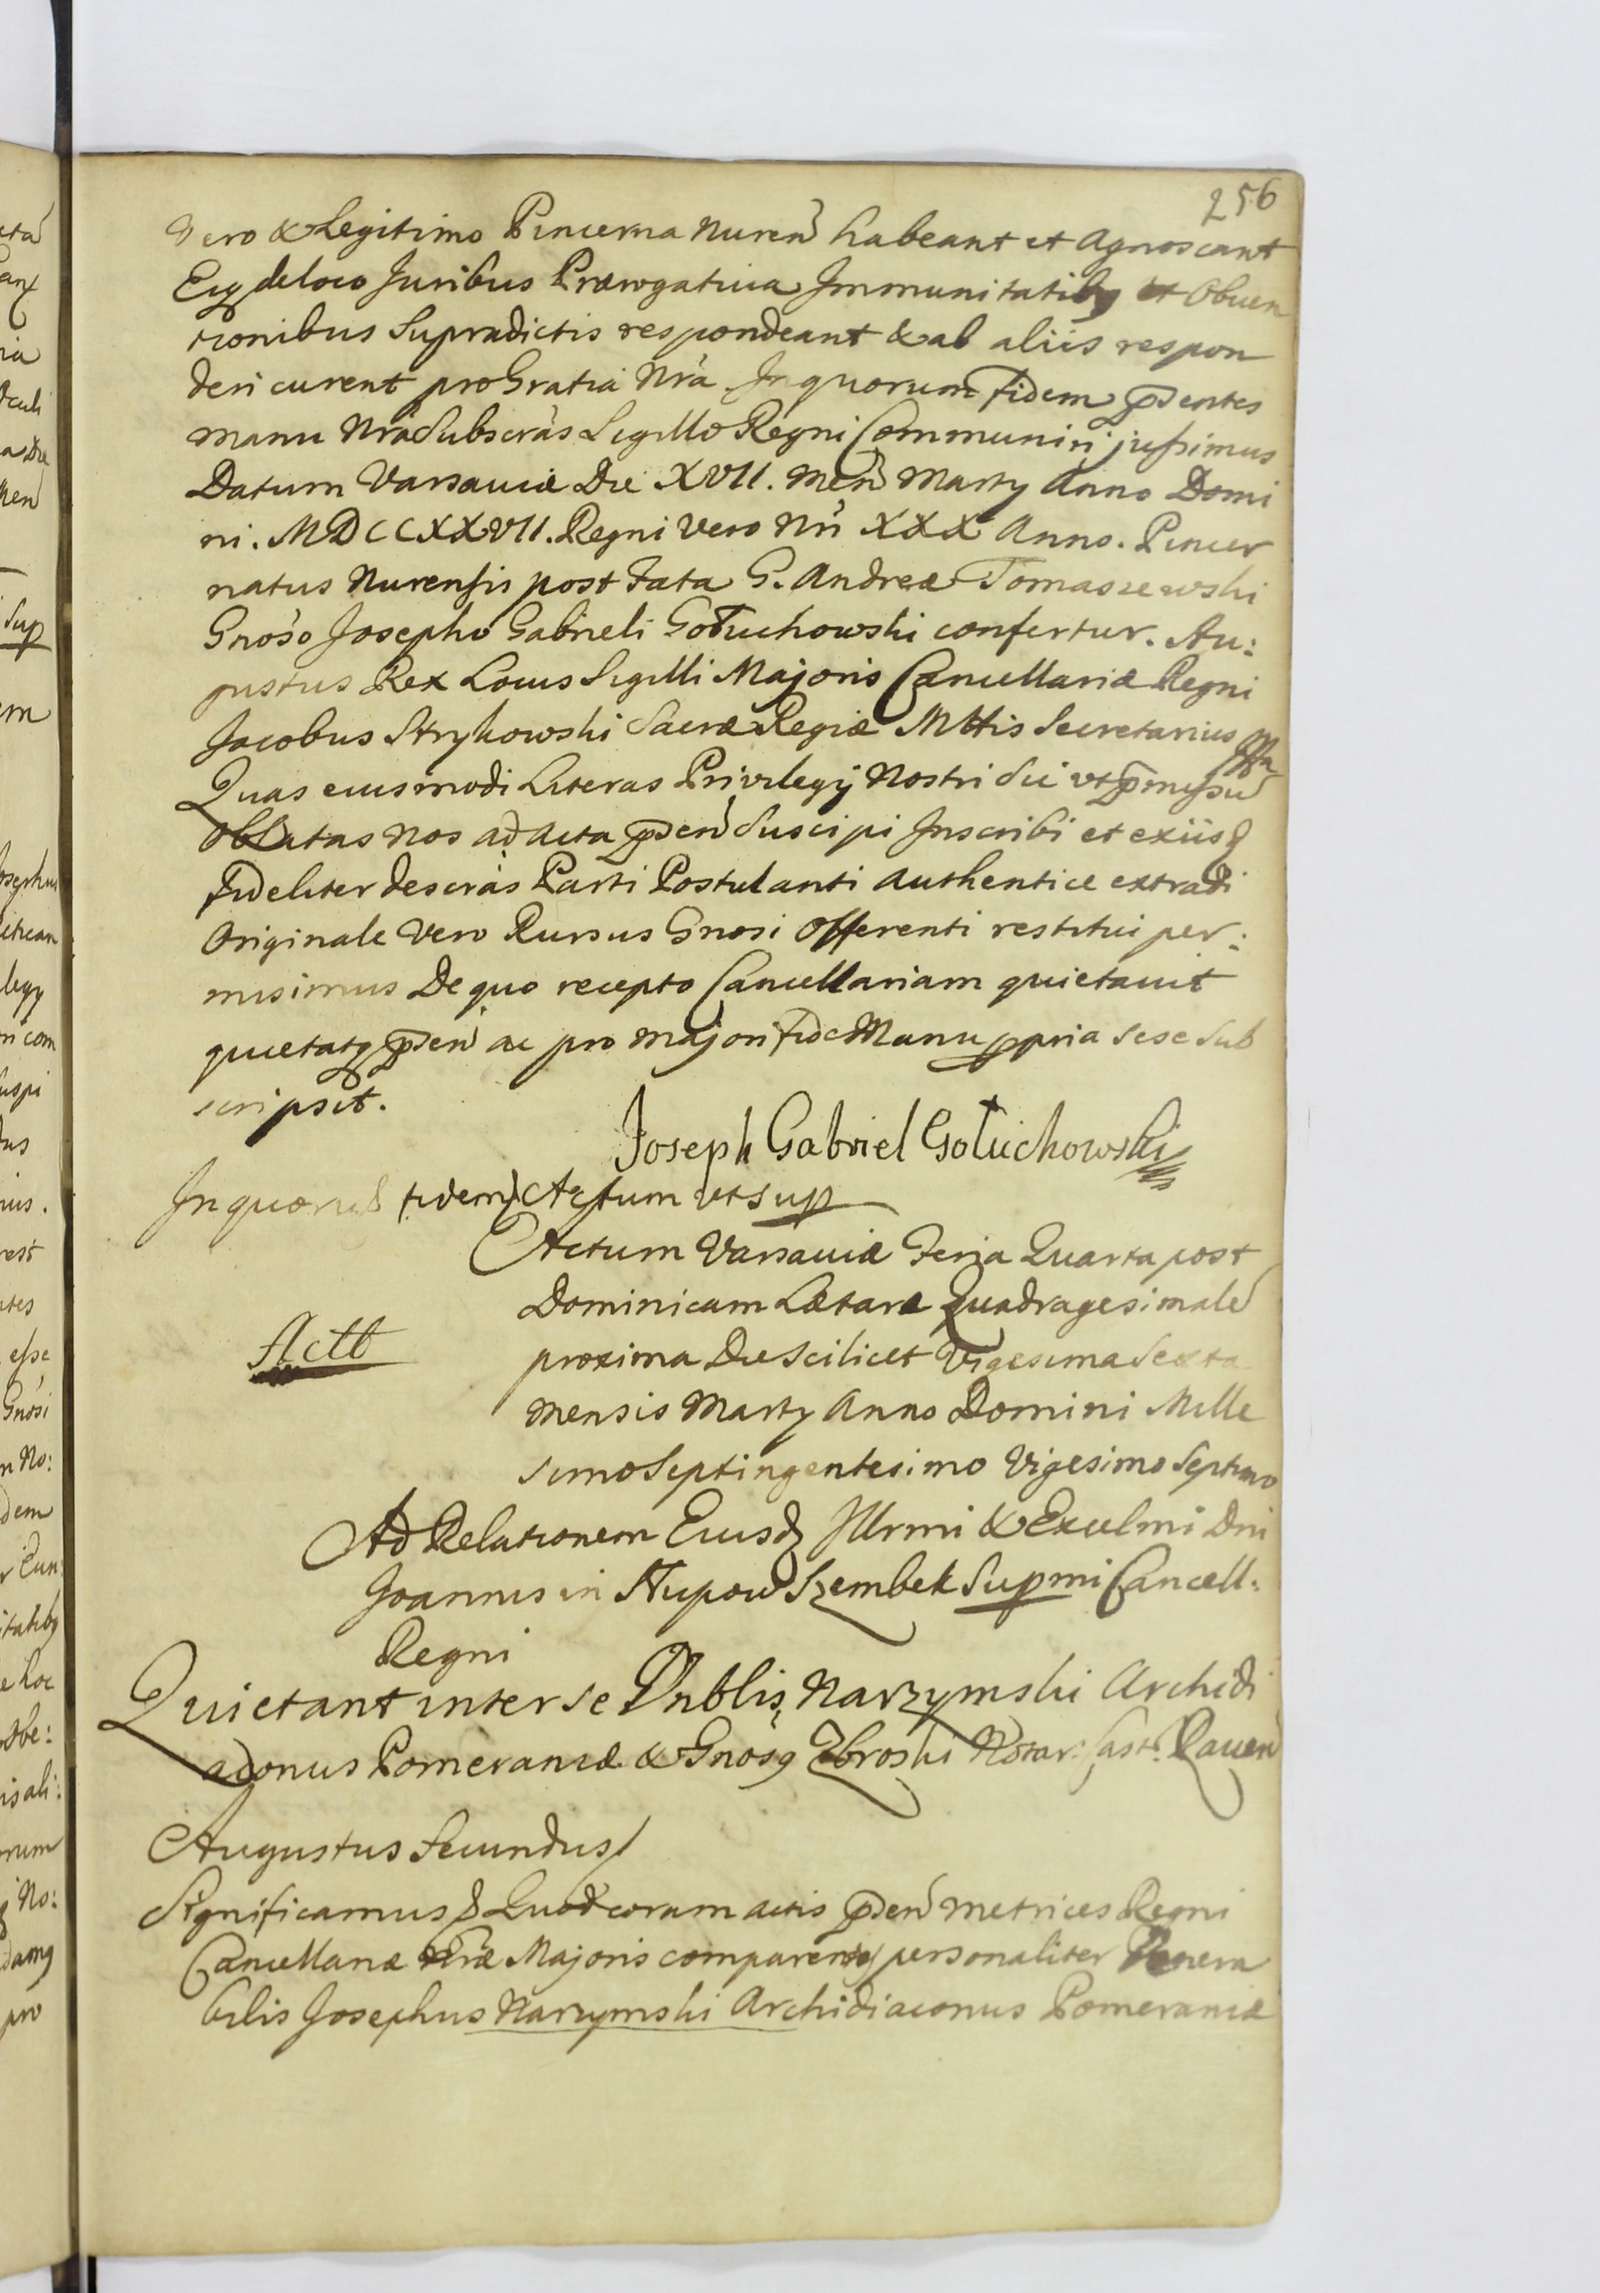 256
Vero & Legitimo Pincerna Nuren habeant et Agnoscant
Eiq de loco Juribus Prærogativa Immunitatibq et Obven
tionibus Supradictis respondeant & ab aliis respon
deri curent pro Gratia Nrã Inquorum Fidem pñtes
manu Nrã Subscras Sigillo Regni Communiri jussimus
Datum Varsaviæ Die XVII. Men Marty Anno Domi
ni. MDCCXXVII. Regni Vero Nri XXX Anno. Pincer
natus Nurensis post Fata G. Andreæ Tomaszewski
Gnoso Josepho Gabrieli Gołuchowski confertur. Au:
gustus Rex Locus Sigilli Majoris Cancellariæ Regni
Jacobus Strykowski Sacræ Regiæ Mttis Secretarius
Quas eiusmodi Literas Privilegij Nostri Sic ut pmissu
Oblatas Nos ad Acta psen Suscipi Inscribi et exiisd
Fideliter descras Parti Postulanti Authentice extradi
Originale Vero Rursus Gnosi Offerenti restitui per:
misimus De quo recepto Cancellariam quietavit
quietatq psen ac pro majori Fide Manu ppria Sese Sub
scripsit.
Joseph Gabriel Gołuchowski
Inquorud fidem Actum ut sup
Actum Varsaviæ Feria Quarta post
Dominicam Lætare Quadragesimale
proxima Die Scilicet Vigesima Sexta
Actt
Mensis Marty Anno Domini Mille
simo Septingentesimo Vigesimo Septimo
Ad Relationem Eiusd Illrmi & Excelmi Dni
Joannis in Słupow Szembek Supmi Cancell.
Regni
Quietant inter se Vnblis Narzymski Archidi
aconus Pomeraniæ & Gnosq Zbroski Notar: Cast: Raven
Augustus Secundus
Significamus & Quod coram actis psen Metrices Regni
Cancellariæ Nræ Majoris comparens personaliter Venera
bilis Josephus Narzymski Archidiaconus Pomeraniæ